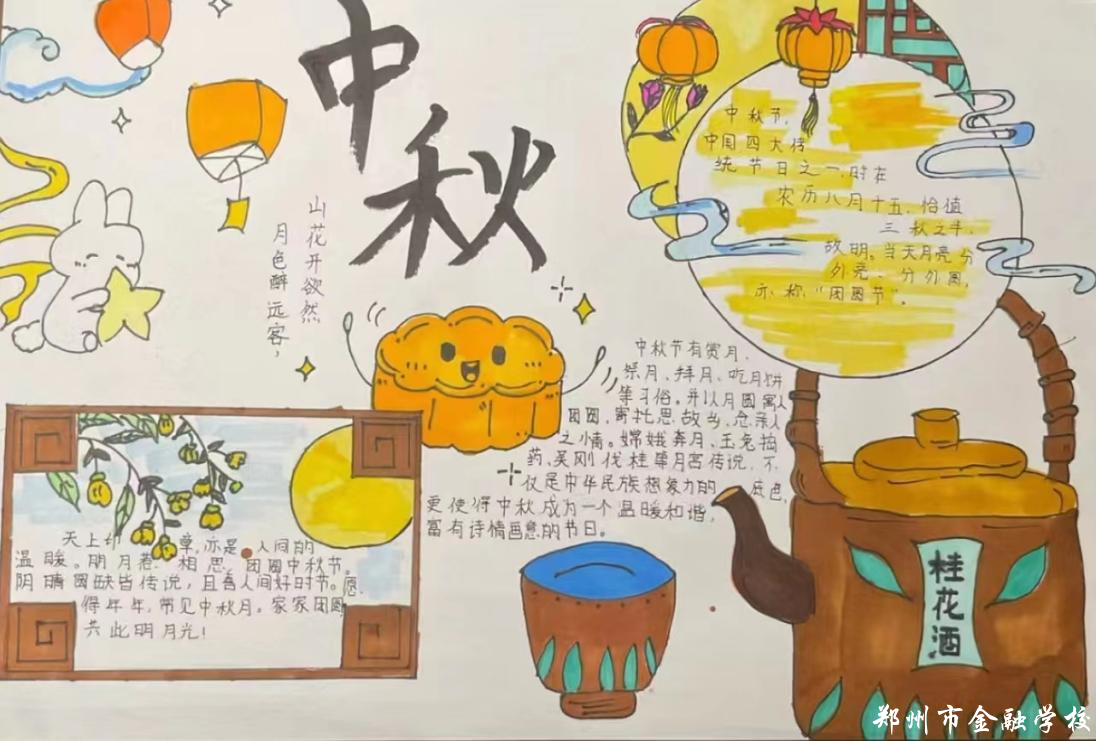 中秋
山花开欲然
月色醉远客，
中秋节，
中国四大传
统节日之一，时在
农历八月十五，恰值
三秋之半，
故明。当天月亮分
外亮、分外圆，
亦称“团圆节”。
中秋节有赏月、
祭月、拜月、吃月饼
等习俗。并以月圆寓人
团圆，寄托思故乡，念亲人
之情。嫦娥奔月、玉兔捣
药、吴刚伐桂等月宫传说，不
仅是中华民族想象力的 底色，
更使得中秋成为一个温暖和谐，
富有诗情画意的节日。
天上 章，亦是人间的
温暖。明月惹 相思 团圆中秋节。
阴晴圆缺皆传说，且喜人间好时节。愿
得年年，常见中秋月。家家团圆
共此明月光！
桂花酒
郑州市金融学校